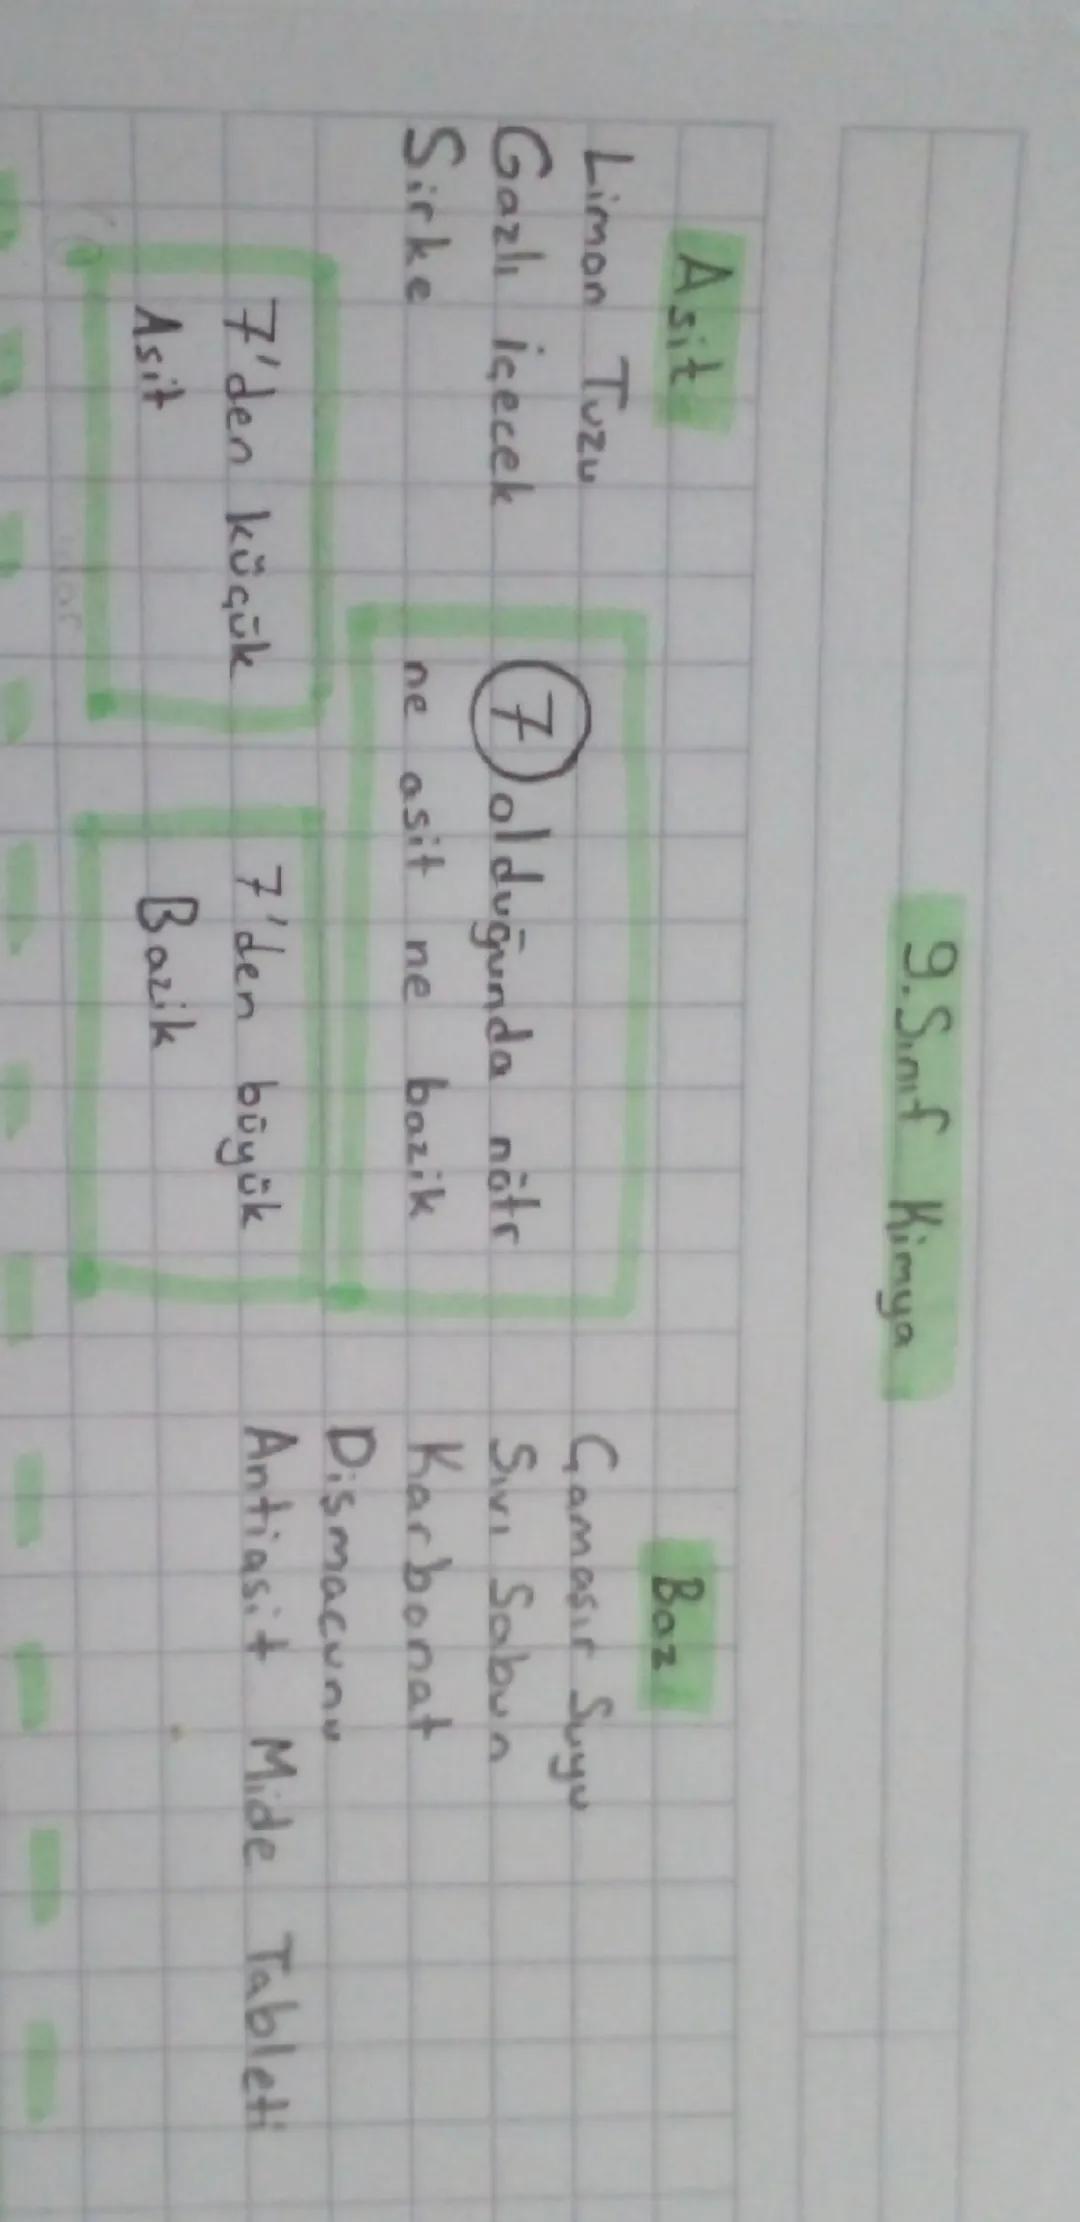 9. Sınıf Kimya
Asit
Limon Tuzu
Gazlı içecek
Sirke
7 olduğunda nötr
ne asit ne bazik
7'den küçük
Asit
7'den büyük
Bazik
Baz
Çamaşır Suyu
Sıvı Sabun
Karbonat
Dişmacunu
Antiasit Mide Tableti